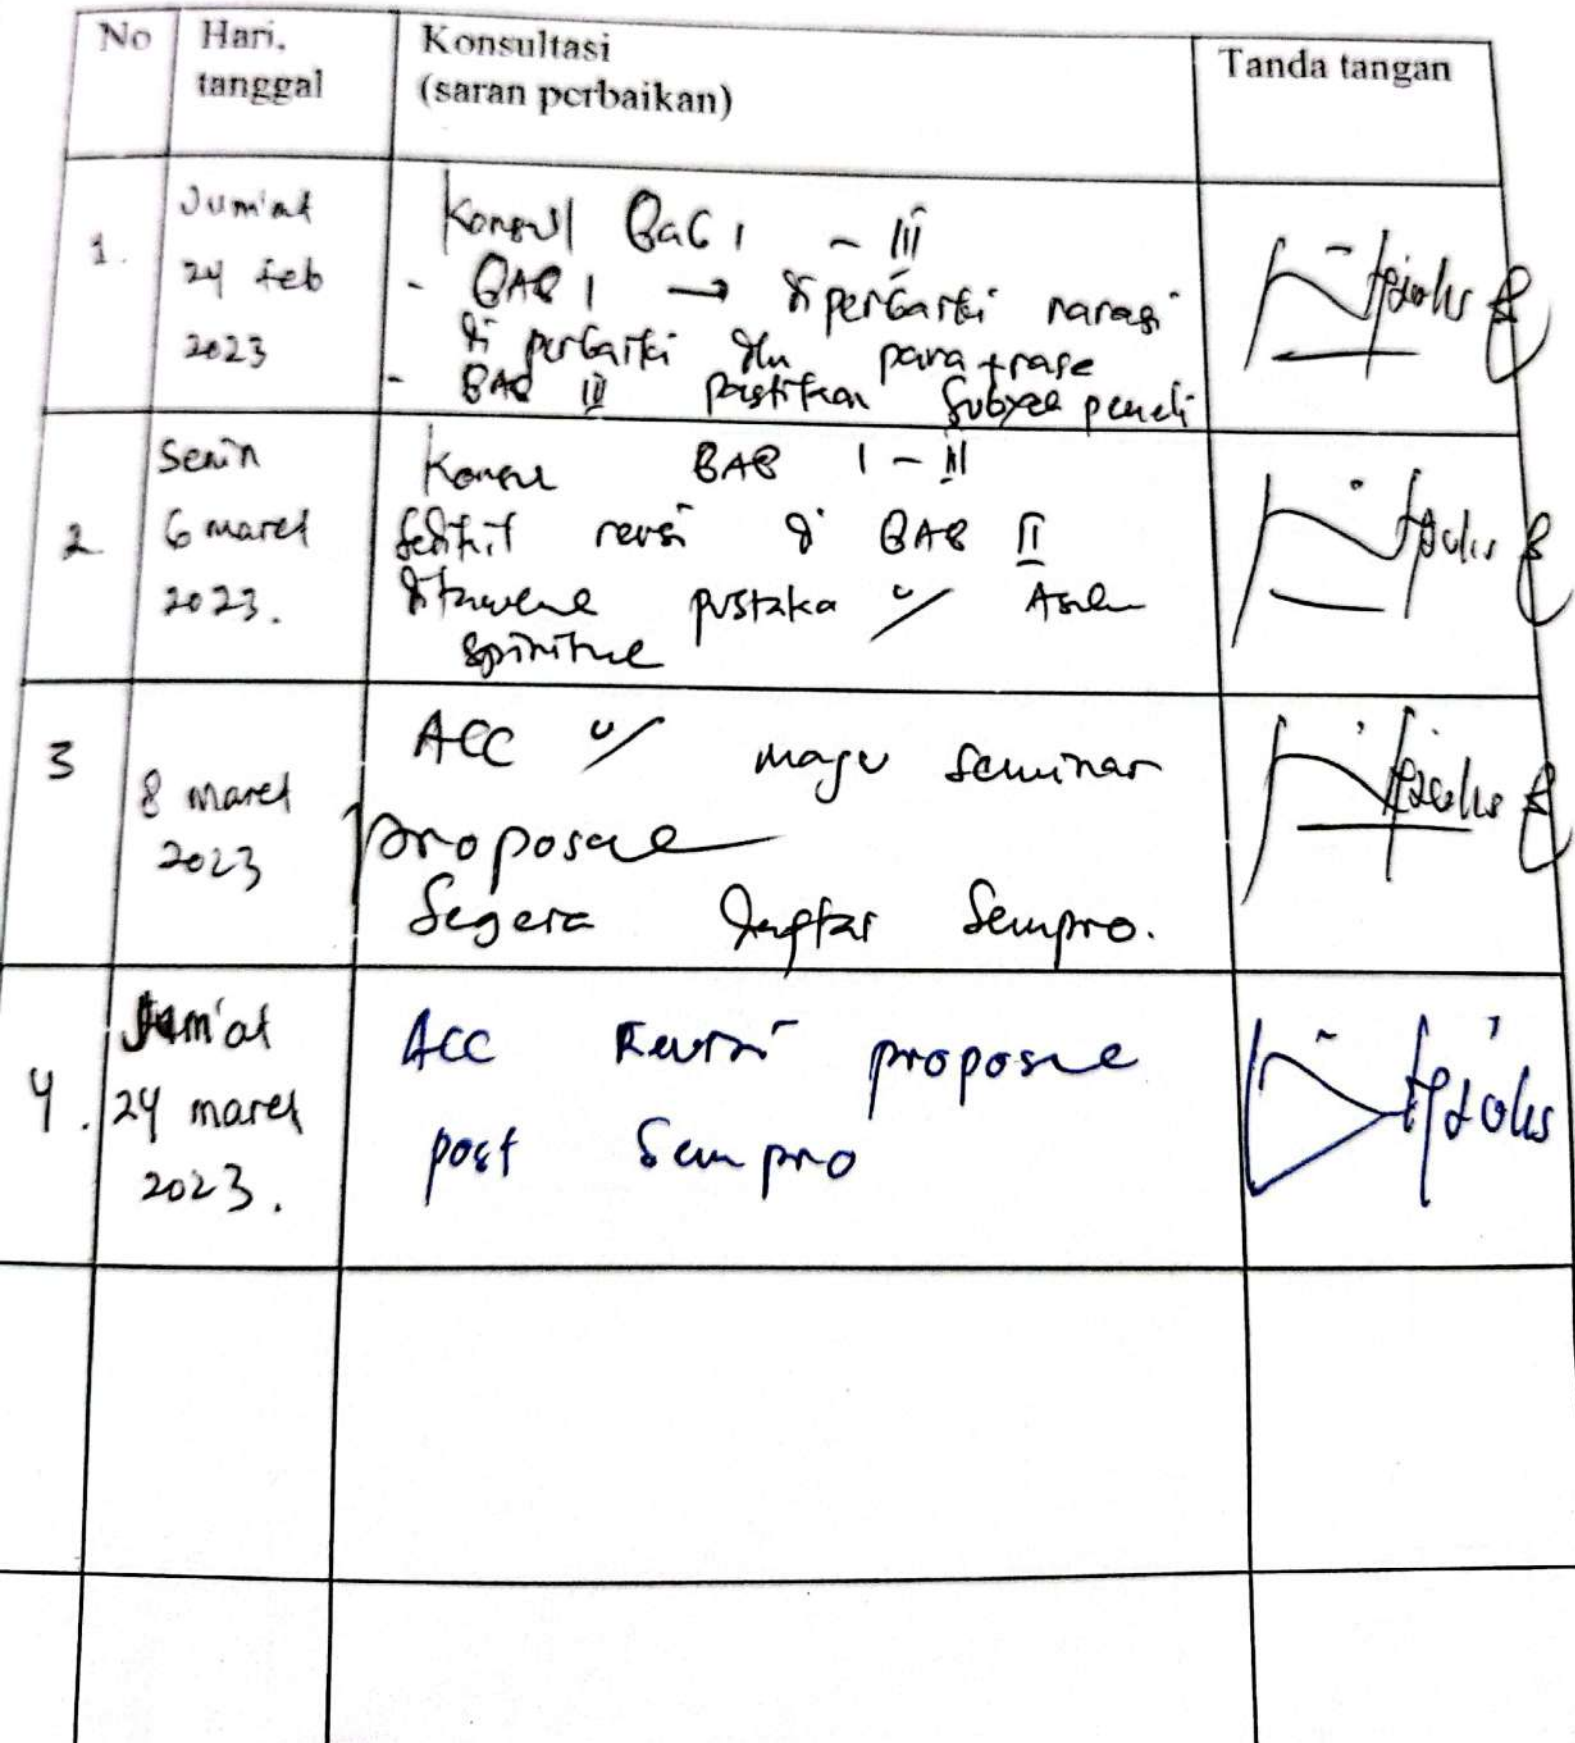 No
Hari,
tanggal
Konsultasi
(saran perbaikan)
Tanda tangan
1.
Jum'at
24 feb
2023
Konsul Bab I - III
- BAB I → diperbaiki narasi
di perbaiki dlm parafrase
- BAB III pastikan Subyek peneli
2
Senin
6 maret
2023.
Konsul BAB I - III
sedikit revisi di BAB II
pustaka u/
spiritual
3
8 maret
2023
ACC u/ maju seminar
proposal
Segera daftar Sempro.
4.
Jum'at
24 maret
2023.
ACC Revisi proposal
post Sempro